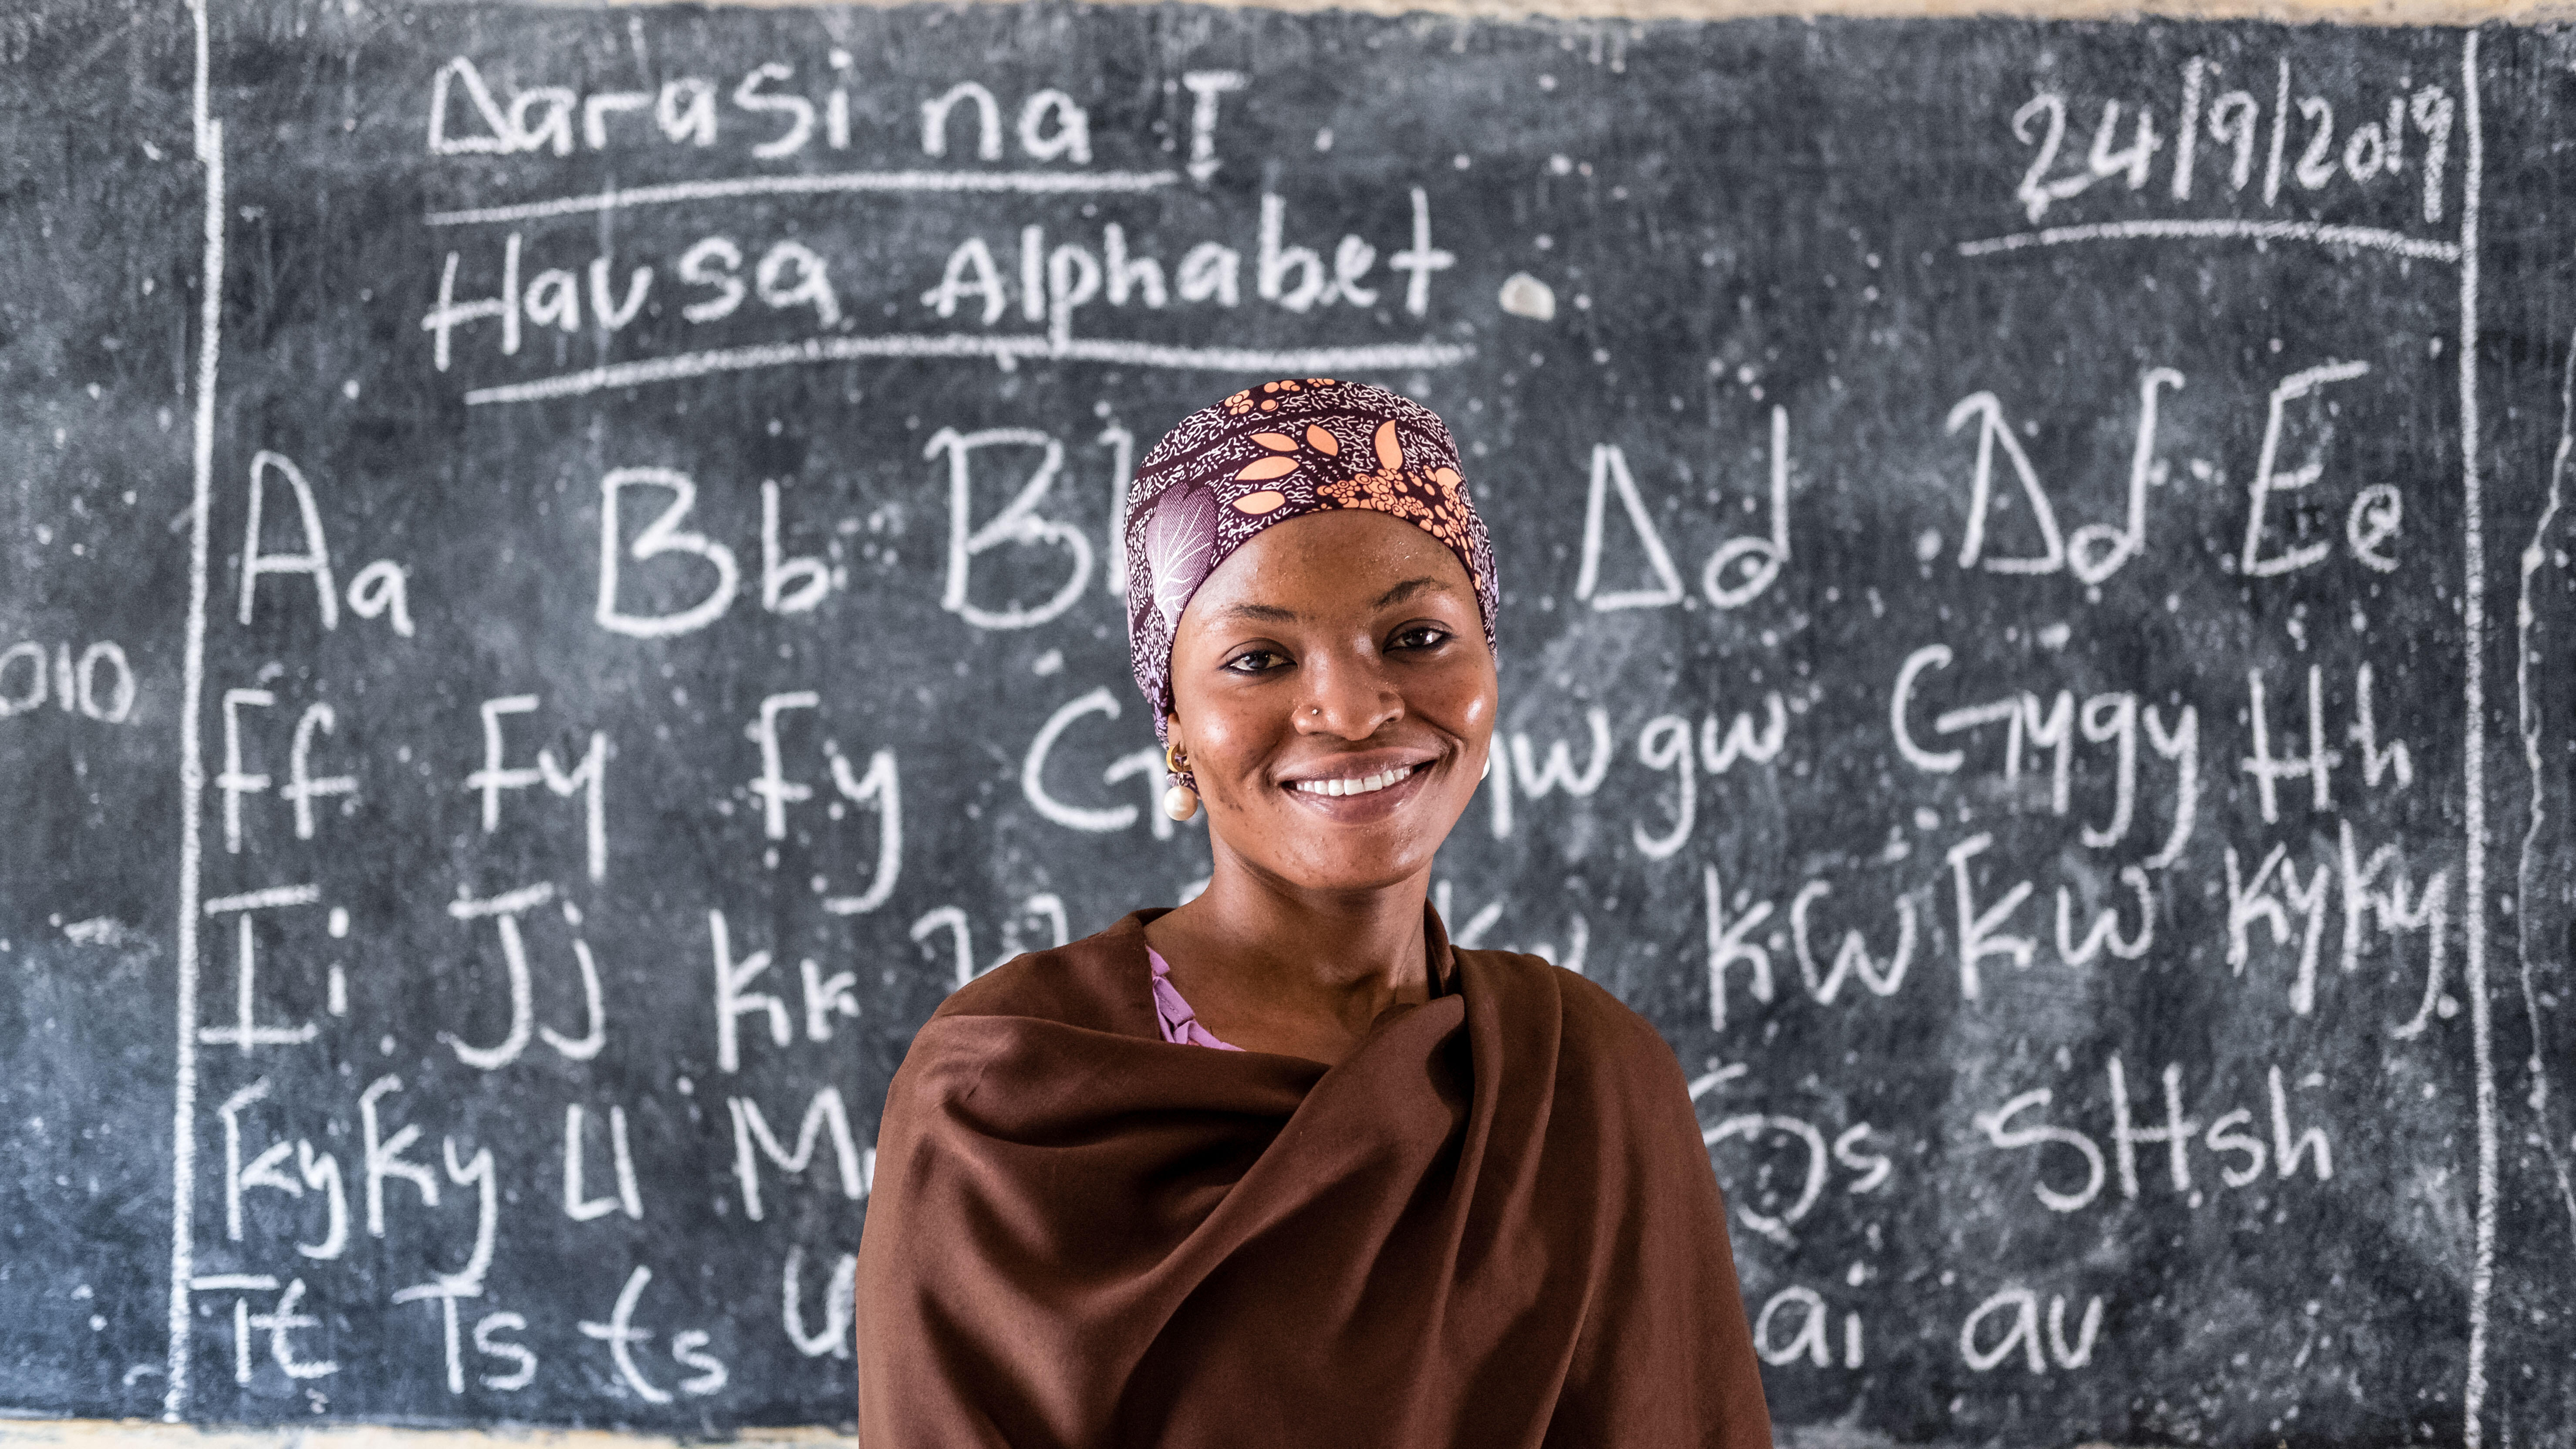 Darasi na I
24/9/2019
Hausa Alphabet
Aa Bb B Dd Ɗɗ Ee
Ff Fy fy G gw Gygy Hh
010
Ii Jj Kk Kw Ƙw Kyky
Ƙyƙy Ll M s SHsh
Tt Ts ts ai au